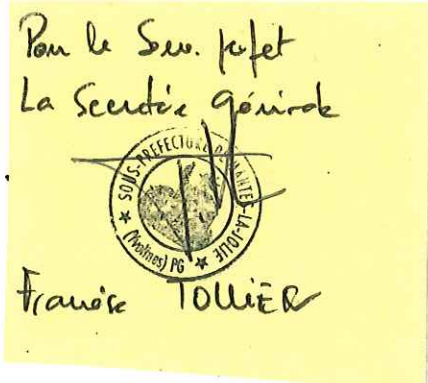 Pour le Sou. préfet
La Secrétaire Générale
SOUS-PREFECTURE DE MANTES-LA-JOLIE
(Yvelines) PG
Françoise TOLLIER